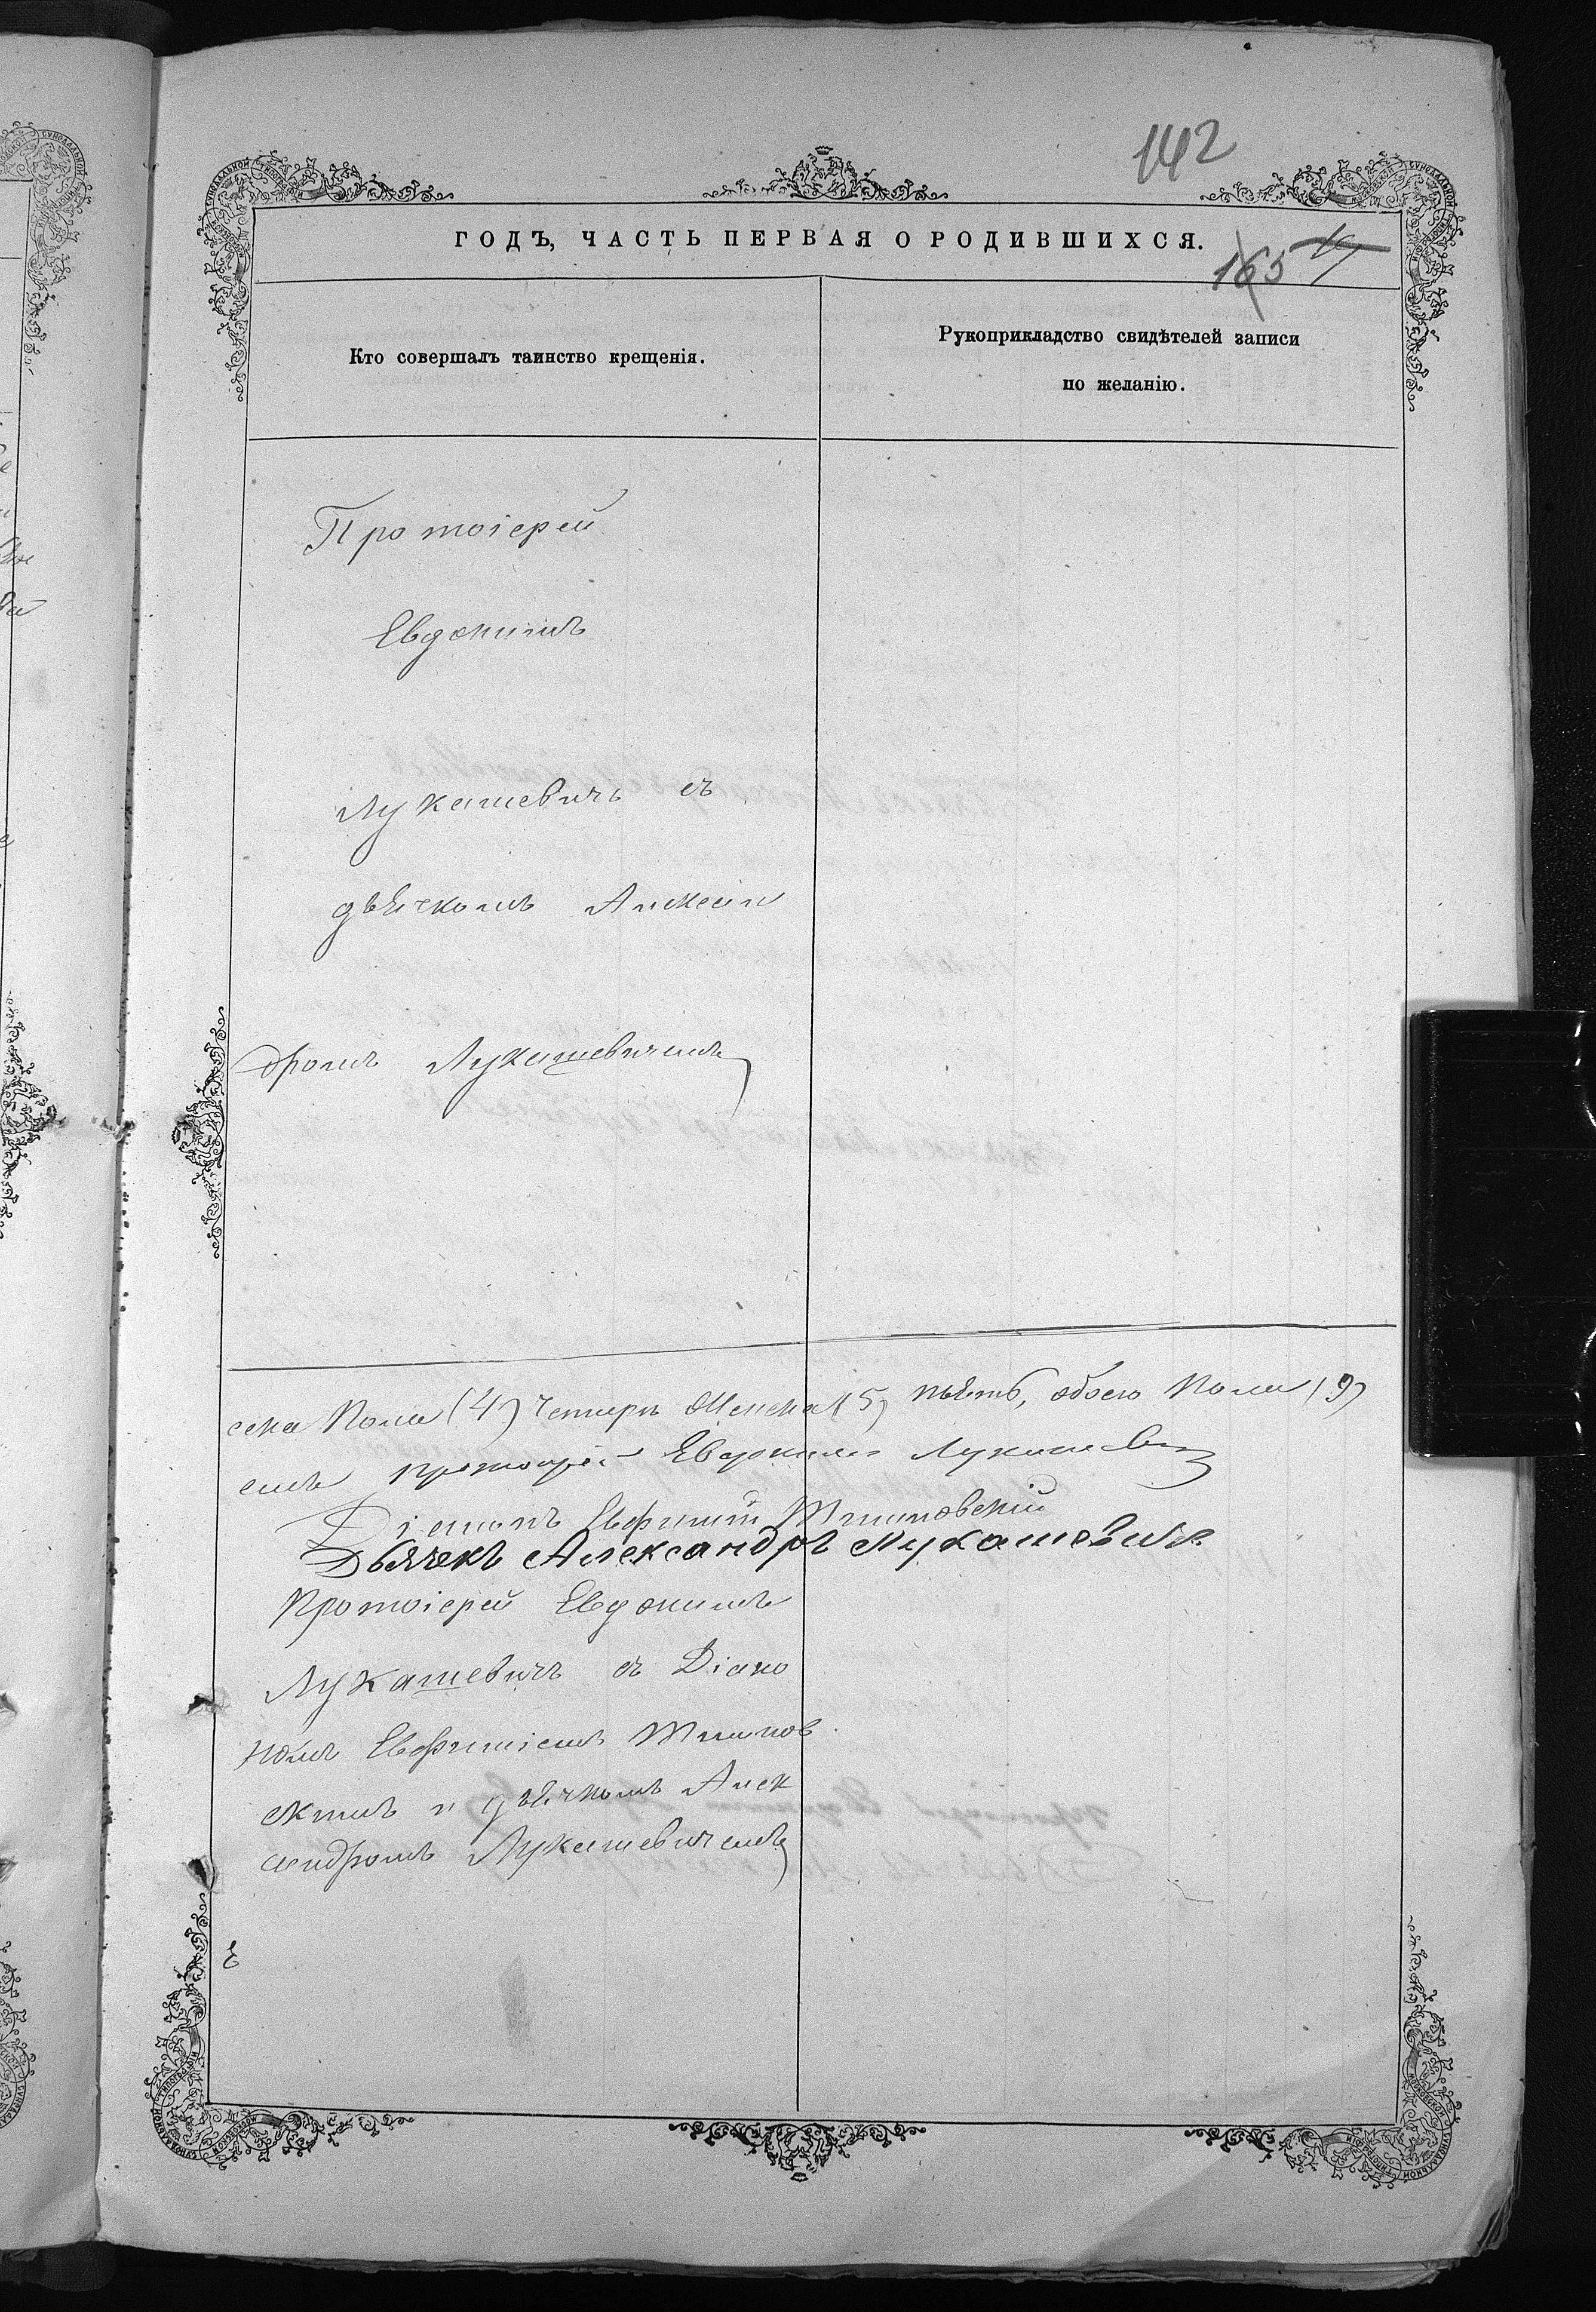 142
ГОДЪ, ЧАСТЬ ПЕРВАЯ О РОДИВШИХСЯ.
165
Кто совершалъ таинство крещенія.
Рукоприкладство свидѣтелей записи
по желанію.
Протоіерей
Евдокимъ
Лукашевичъ съ
дьячкомъ Алексан
дромъ Лукашевичемъ
ска Пола (4) Четыри Женска (5) пьять, обоего Пола (9)
Протоіерей Евдокимъ Лукашевич
Діаконъ Евфимій
Дьячекъ Александръ Лукашевичъ
Протоіерей Евдокимъ
Лукашевичъ съ Діако
номъ Евфиміемъ
скимъ и дьячкомъ Алек
сандромъ Лукашевичемъ